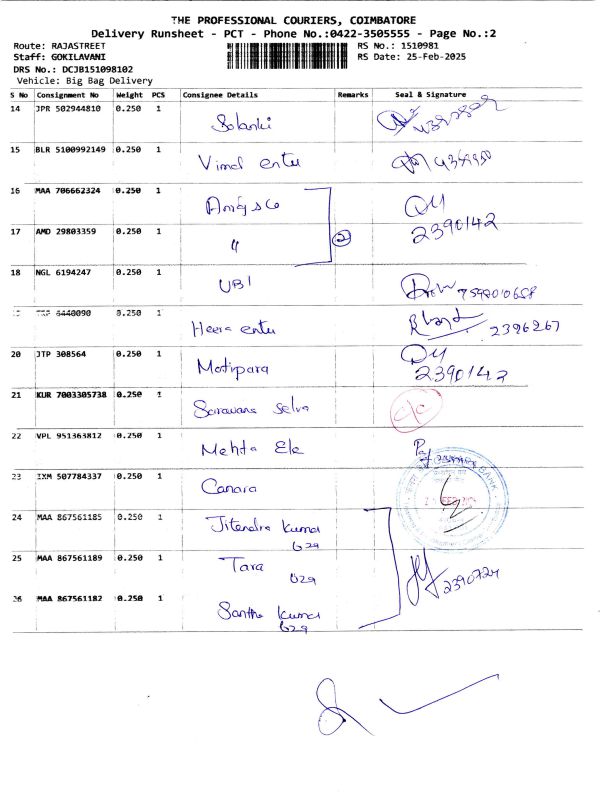 THE PROFESSIONAL COURIERS, COIMBATORE
Delivery Runsheet - PCT - Phone No.:0422-3505555 - Page No.:2
Route: RAJASTREET RS No.: 1510981
Staff: GOKILAVANI RS Date: 25-Feb-2025
DRS No.: DCJB151098102
Vehicle: Big Bag Delivery
S No Consignment No Weight PCS Consignee Details Remarks Seal & Signature
14 JPR 502944810 0.250 1 Solanki
15 BLR 5100992149 0.250 1 Vimal enter
16 MAA 706662324 0.250 1
2390142
17 AMD 29803359 0.250 1 " 2
18 NGL 6194247 0.250 1 UBI
6440090 0.250 1 Heera enter 2396267
20 JTP 308564 0.250 1 Motipara 2390142
21 KUR 7003305738 0.250 1 Saravana Selva c/c
22 VPL 951363812 0.250 1 Mehta Ele
23 IXM 507784337 0.250 1 Canara BANK
24 MAA 867561185 0.250 1 Jitendra Kumar
629
25 MAA 867561189 0.250 1 Tara 2390724
629
26 MAA 867561182 0.250 1 Santhu Kumar
629